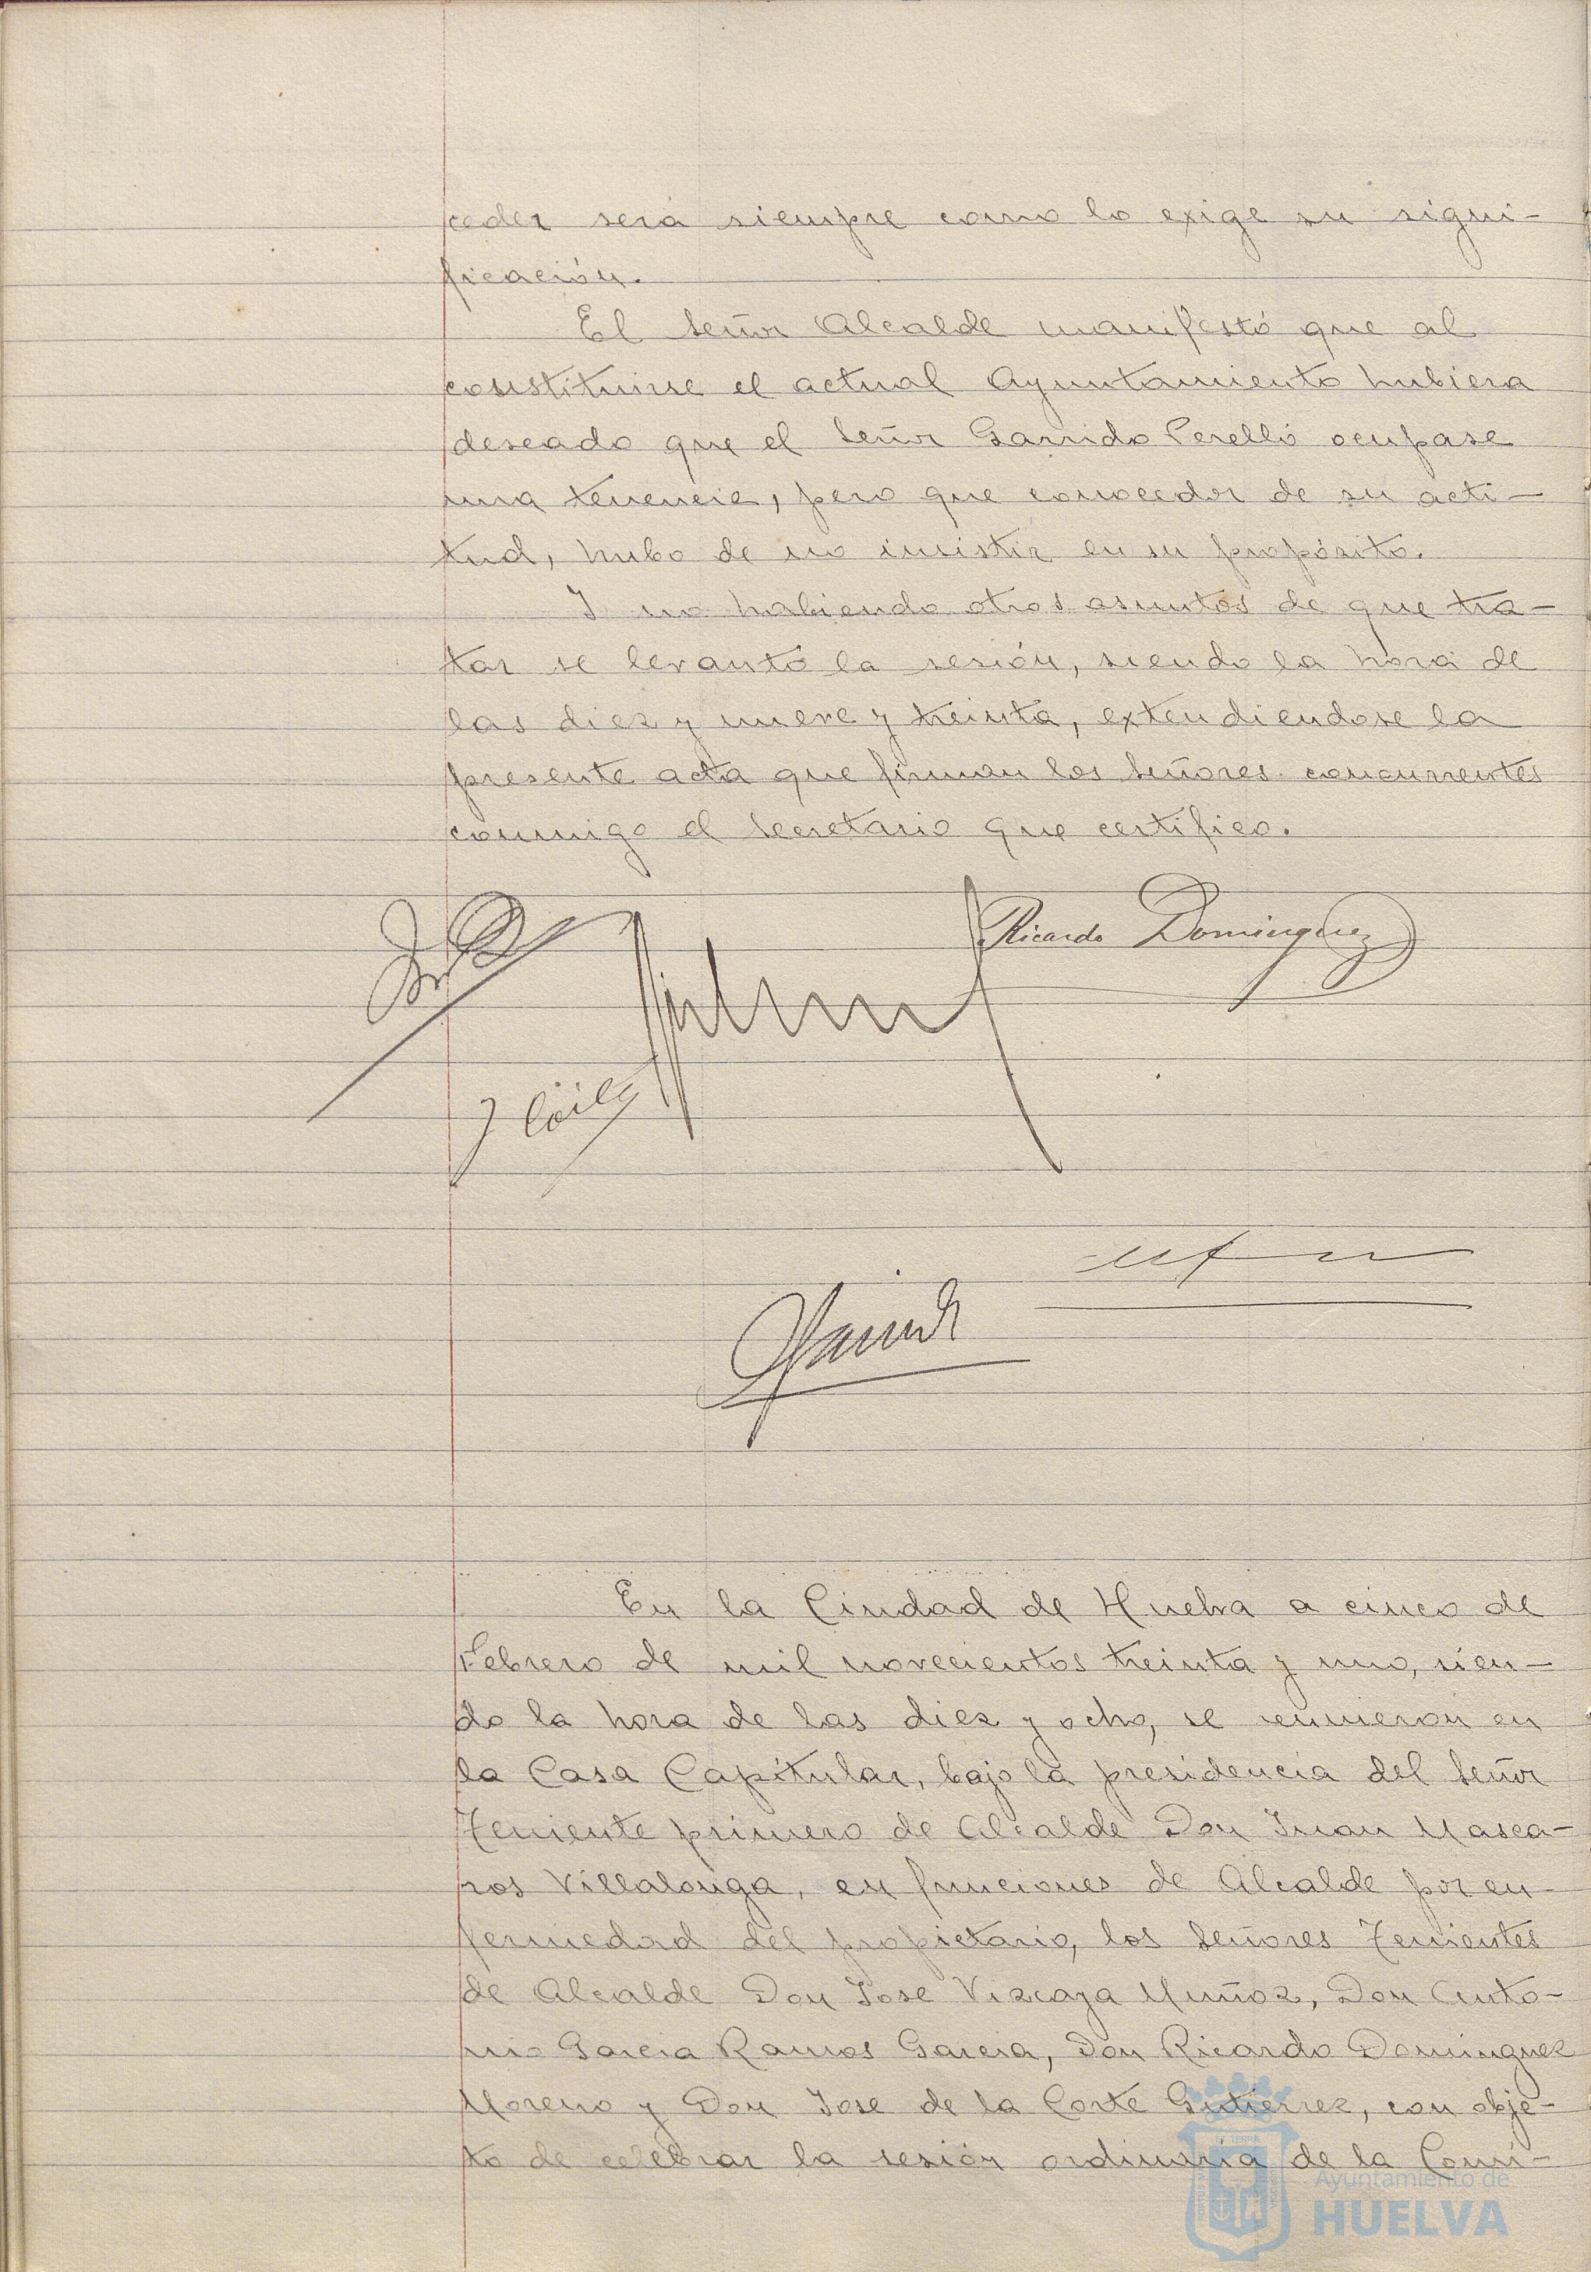 ceder será siempre como lo exige su signi-
ficación.
El Señor Alcalde manifestó que al
constituirse el actual Ayuntamiento hubiera
deseado que el Señor Garrido Perelló ocupase
una tenencia, pero que conocedor de su acti-
tud, hubo de no insistir en su propósito.
Y no habiendo otros asuntos de que tra-
tar se levantó la sesión, siendo la hora de
las diez y nueve y treinta, extendiendose la
presente acta que firman los Señores concurrentes
conmigo el Secretario que certifico.
Ricardo Dominguez
En la Ciudad de Huelva a cinco de
Febrero de mil novecientos treinta y uno, sien-
do la hora de las diez y ocho, se reunieron en
la Casa Capitular, bajo la presidencia del Señor
Teniente primero de Alcalde Don Juan Masca-
ros Villalonga, en funciones de Alcalde por en-
fermedad del propietario, los Señores Tenientes
de Alcalde Don Jose Vizcaya Muñoz, Don Anto-
nio Garcia Ramos Garcia, Don Ricardo Dominguez
Moreno y Don Jose de la Corte Gutierrez, con obje-
to de celebrar la sesión ordinaria de la Comi-
Ayuntamiento de
HUELVA